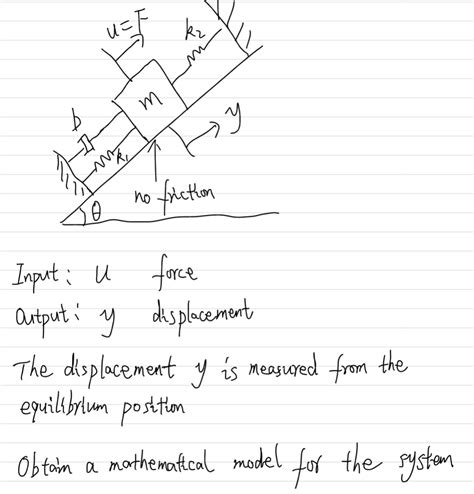 u=F
k2
m
b
y
k1
no friction
θ
Input: u force
Output: y displacement
The displacement y is measured from the
equilibrium position
Obtain a mathematical model for the system